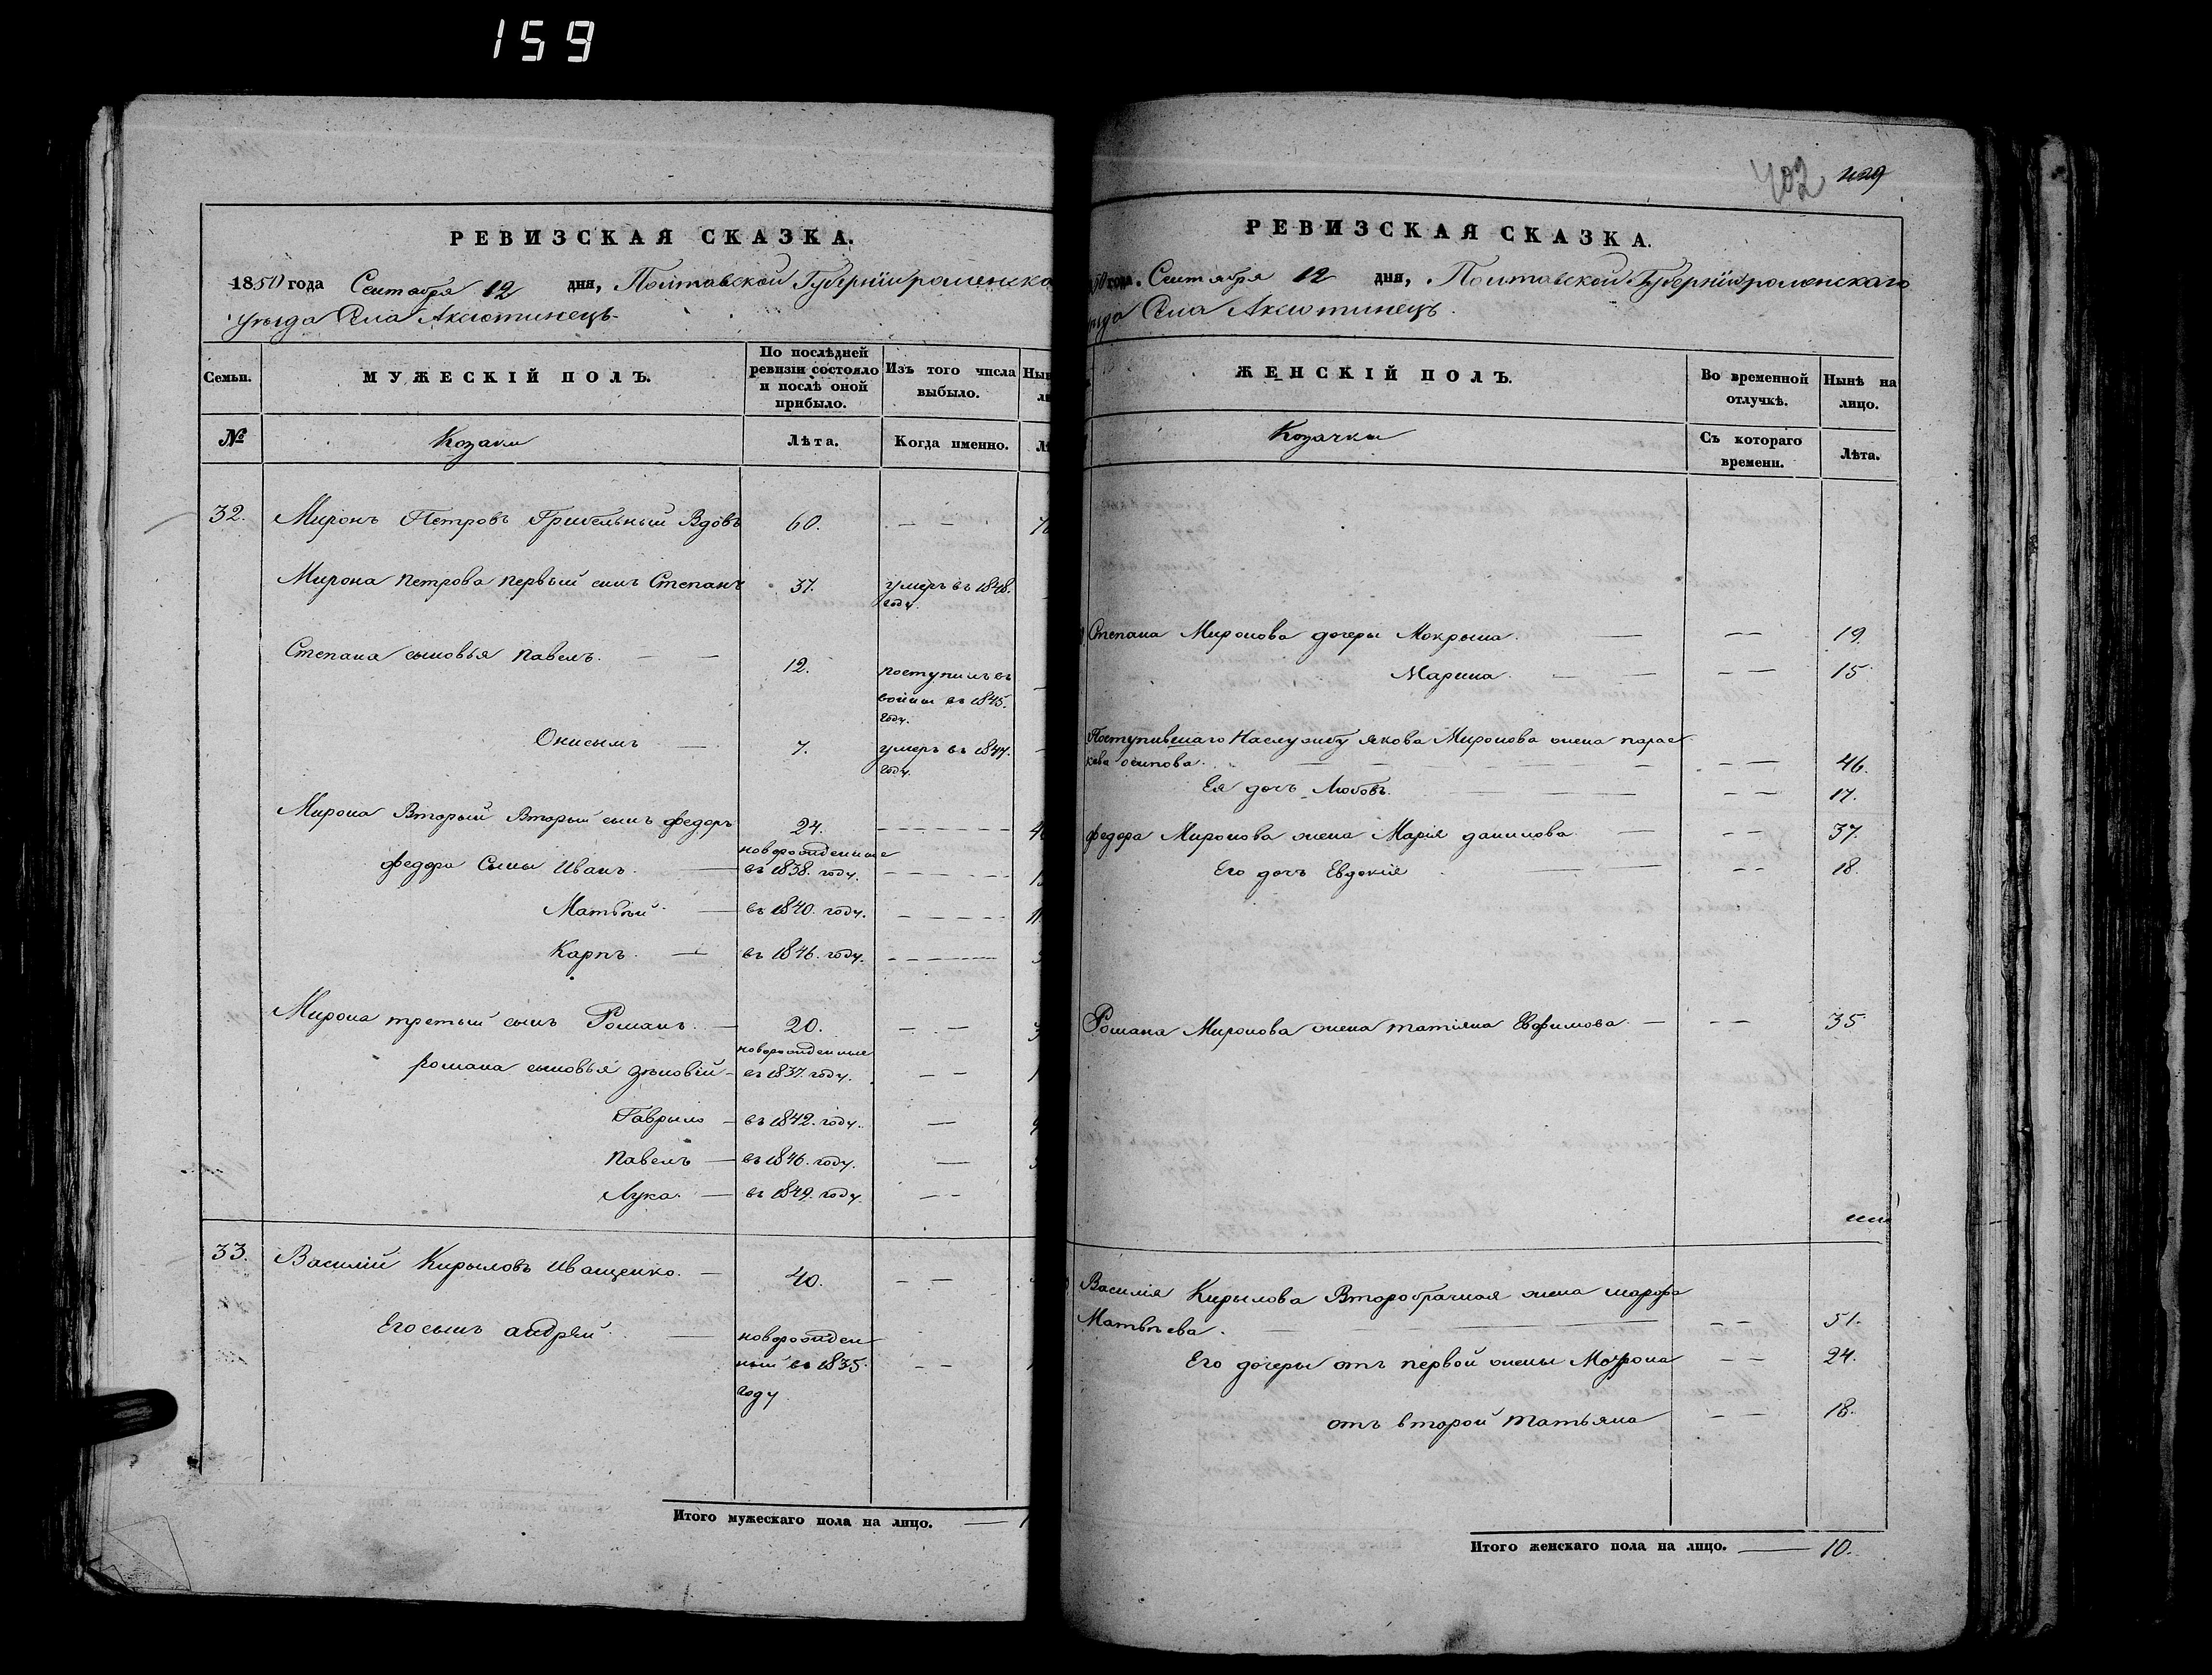 159
РЕВИЗСКАЯ СКАЗКА.
1850 года Сентября 12 дня, Полтавской Губернии роменска
уезда Села Аксютинецъ
Семьи.
МУЖЕСКІЙ ПОЛЪ.
По послѣдней ревизіи состояло и послѣ оной прибыло.
Изъ того числа выбыло.
№
Козаки
Лѣта.
Когда именно.
32. Миронъ Петровъ Грибельный Вдовъ 60. — —
Мирона Петрова первый сынъ Степанъ 37. умеръ въ 1848. году.
Степана сыновья Павелъ. — — 12. поступилъ въ
войски въ 1845.
году.
Онисымъ — 7. умеръ въ 1847.
году.
Мирона Вторый Вторый сынъ федоръ 24.
новорожденные
федора Сыны Иванъ. — въ 1838. году.
Матвѣй — въ 1840. году.
Карпъ. — въ 1846. году.
Мирона третый сынъ Романъ. — 20. — —
новорожденные
романа сыновья зѣновій — въ 1837. году. — —
Гаврыло — въ 1842. году. —
Павелъ — въ 1846. году. —
Лука. — въ 1849. году. — —
33. Василій Кирыловъ Иващенко. — 40. — —
Его сынъ андрей. — новорожден
ный въ 1835. — —
году
Итого мужескаго пола на лицо. —
402 429
РЕВИЗСКАЯ СКАЗКА.
года. Сентября 12 дня, Полтавской Губерніи роменскаго
Села Аксютинецъ.
ЖЕНСКІЙ ПОЛЪ.
Во временной отлучкѣ.
Нынѣ на лицо.
Козачки
Съ котораго времени.
Лѣта.
Степана Миронова дочеры Мокрына. — — — 19.
Марина. — — — — 15.
Поступившаго На службу якова Миронова жена парас
кева осипова. — — 46.
Ея дочъ Любовъ. — — 17.
федора Миронова жена Марія данилова — — — 37.
Его дочъ Евдокія — — — 18.
Романа Миронова жена татіяна Евфимова. — — — 35
Василія Кирылова Второбрачная жена марфа
Матвѣева. — — — 51.
Его дочеры отъ первой жены Мотрона — — 24.
отъ второй татьяна — — 18.
Итого женскаго пола на лицо. — 10.